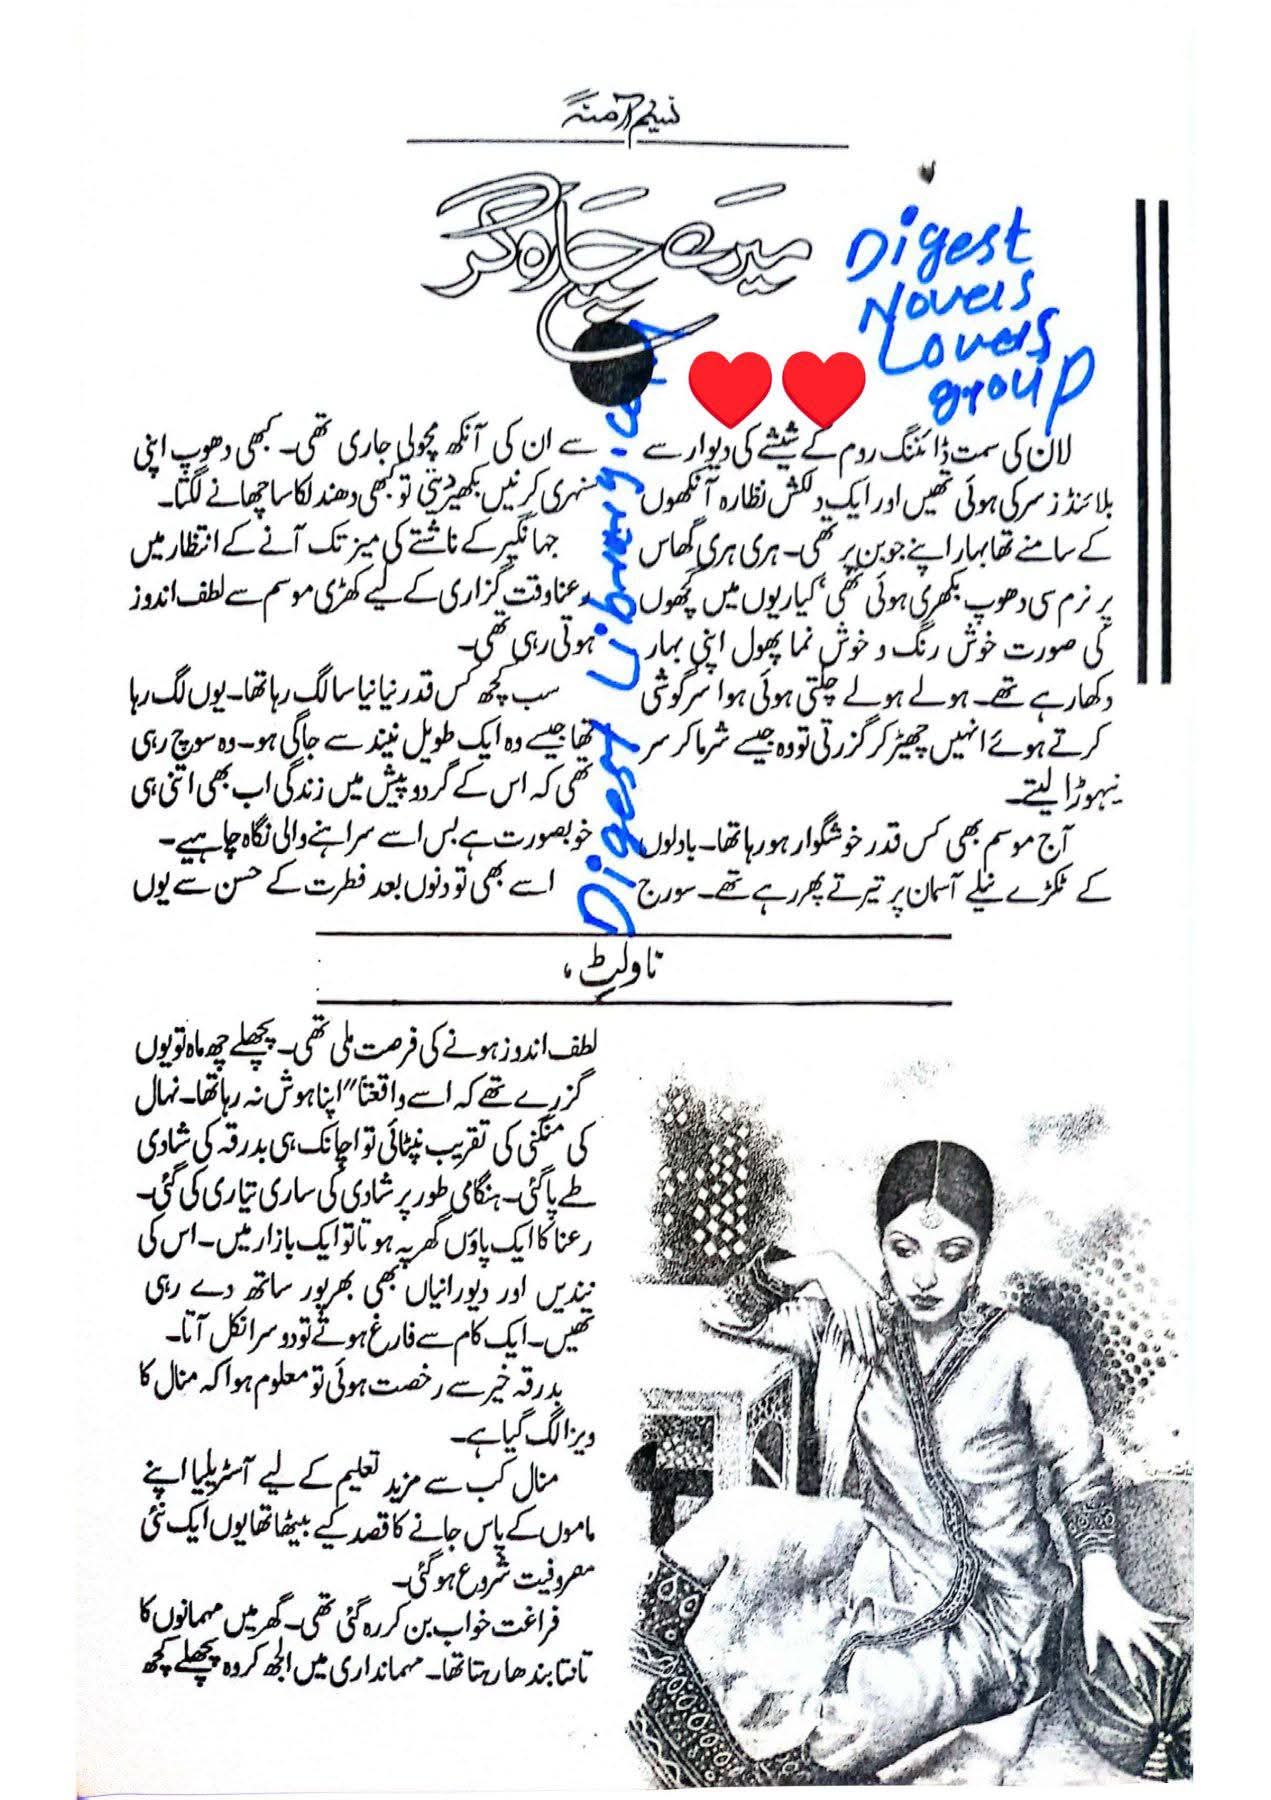 نسیم آمنہ
میرے چارہ گر
Digest
Novels
Lovers
group
Digest Library.com
لان کی سمت ڈائننگ روم کے شیشے کی دیوار سے
بلائنڈز سرکی ہوئی تھیں اور ایک دلکش نظارہ آنکھوں
کے سامنے تھا بہار اپنے جوبن پر تھی۔ ہری ہری گھاس
پر نرم سی دھوپ بکھری ہوئی تھی‘ کیاریوں میں گچھوں
کی صورت خوش رنگ و خوش نما پھول اپنی بہار
دکھا رہے تھے۔ ہولے ہولے چلتی ہوئی ہوا سرگوشی
کرتے ہوئے انہیں چھیڑ کر گزرتی تو وہ جیسے شرما کر سر
نیہوڑا لیتے۔
آج موسم بھی کس قدر خوشگوار ہو رہا تھا۔ بادلوں
کے ٹکڑے نیلے آسمان پر تیرتے پھر رہے تھے۔ سورج
سے ان کی آنکھ مچولی جاری تھی۔ کبھی دھوپ اپنی
سنہری کرنیں بکھیر دیتی تو کبھی دھندلکا سا چھانے لگتا۔
جہانگیر کے ناشتے کی میز تک آنے کے انتظار میں
رعنا وقت گزاری کے لیے کھڑی موسم سے لطف اندوز
ہوتی رہی تھی۔
سب کچھ کس قدر نیا نیا سا لگ رہا تھا۔ یوں لگ رہا
تھا جیسے وہ ایک طویل نیند سے جاگی ہو۔ وہ سوچ رہی
تھی کہ اس کے گردوپیش میں زندگی اب بھی اتنی ہی
خوبصورت ہے بس اسے سراہنے والی نگاہ چاہیے۔
اسے بھی تو دنوں بعد فطرت کے حسن سے یوں
ناولیٹ
لطف اندوز ہونے کی فرصت ملی تھی۔ پچھلے چھ ماہ تو یوں
گزرے تھے کہ اسے واقعتاً" اپنا ہوش نہ رہا تھا۔ نہال
کی منگنی کی تقریب نپٹائی تو اچانک ہی بدرقہ کی شادی
طے پا گئی۔ ہنگامی طور پر شادی کی ساری تیاری کی گئی۔
رعنا کا ایک پاؤں گھر پہ ہوتا تو ایک بازار میں۔ اس کی
نندیں اور دیورانیاں بھی بھرپور ساتھ دے رہی
تھیں۔ ایک کام سے فارغ ہوتے تو دوسرا نکل آتا۔
بدرقہ خیر سے رخصت ہوئی تو معلوم ہوا کہ منال کا
ویزا لگ گیا ہے۔
منال کب سے مزید تعلیم کے لیے آسٹریلیا اپنے
ماموں کے پاس جانے کا قصد کیے بیٹھا تھا یوں ایک نئی
مصروفیت شروع ہو گئی۔
فراغت خواب بن کر رہ گئی تھی۔ گھر میں مہمانوں کا
تانتا بندھا رہتا تھا۔ مہمانداری میں الجھ کر وہ پچھلے کچھ